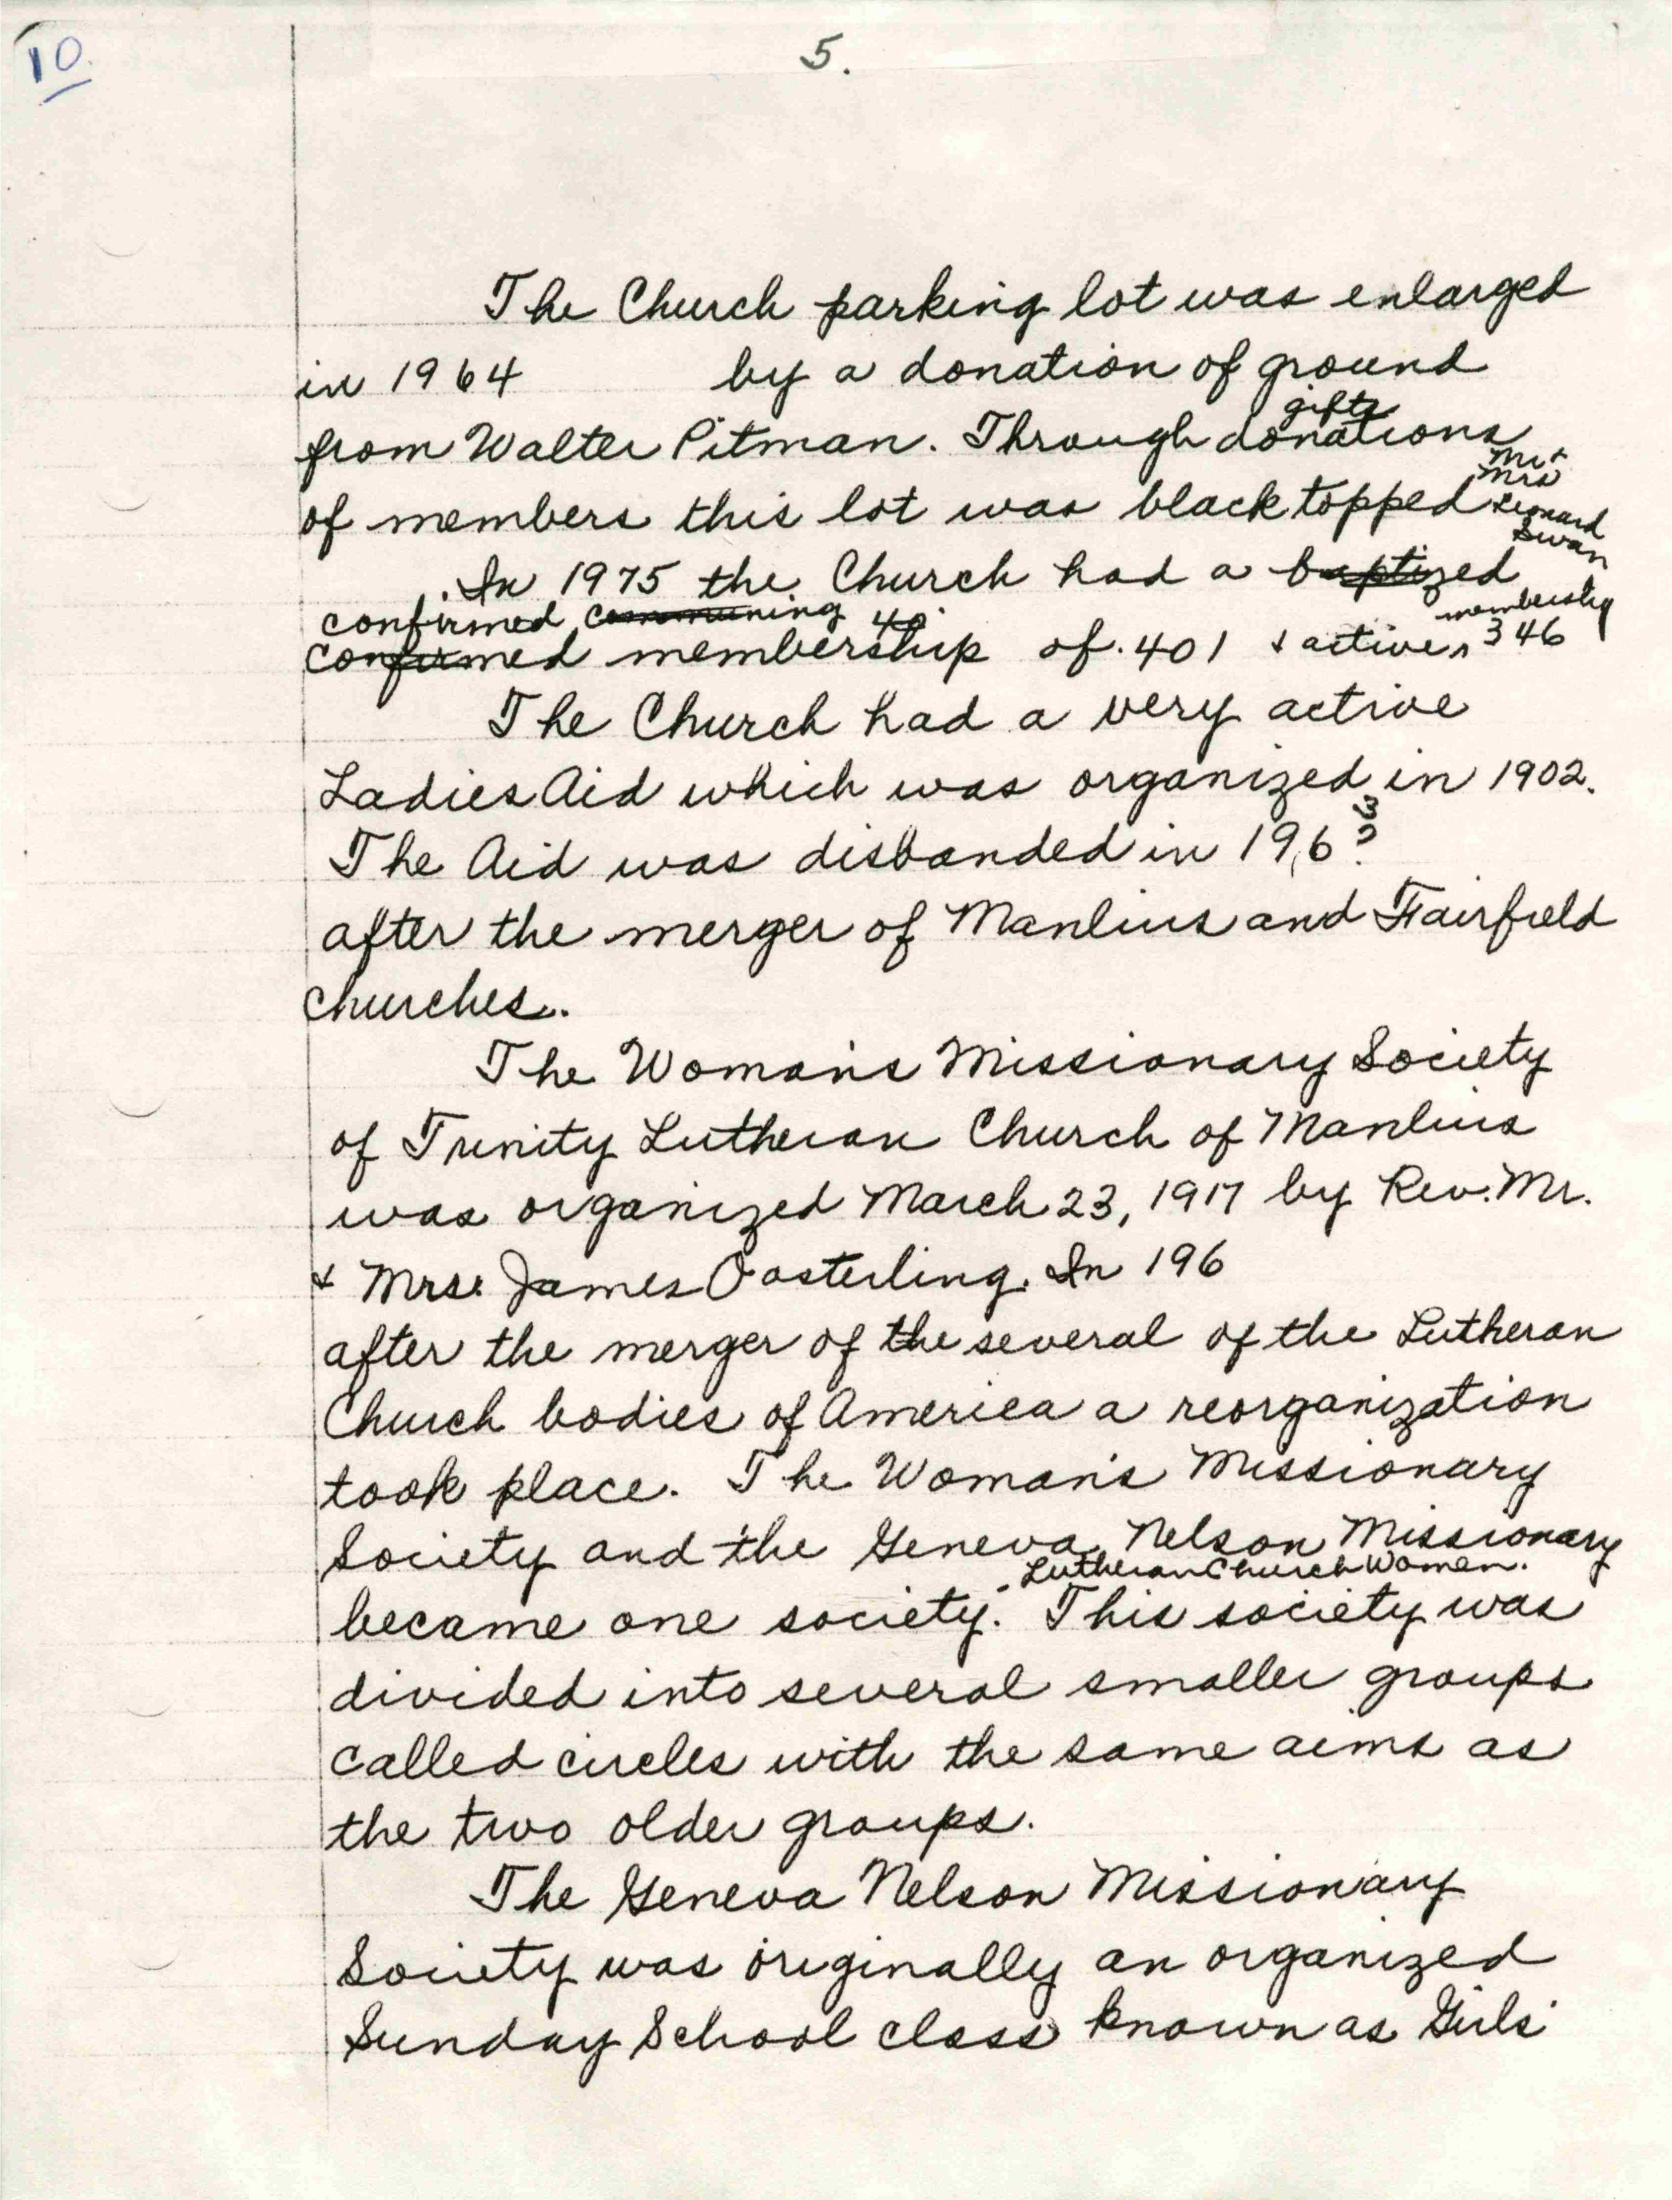 10.
5.
The Church parking lot was enlarged
in 1964 by a donation of ground
gifts
from Walter Pitman. Through donations
Mr +
Mrs
of members this lot was black topped Leonard
Swan
In 1975 the Church had a baptized
confirmed communing 40 membership
confirmed membership of 401 + active 346
The Church had a very active
Ladies Aid which was organized in 1902.
3
The Aid was disbanded in 196?
after the merger of Manlius and Fairfield
churches.
The Woman's Missionary Society
of Trinity Lutheran Church of Manlius
was organized March 23, 1917 by Rev. Mr.
+ Mrs. James Oosterling. In 196
after the merger of the several of the Lutheran
Church bodies of America a reorganization
took place. The Woman's Missionary
Society and the Geneva Nelson Missionary
Lutheran Church Women.
became one society. This society was
divided into several smaller groups
called circles with the same aims as
the two older groups.
The Geneva Nelson Missionary
Society was originally an organized
Sunday School class known as Girls'